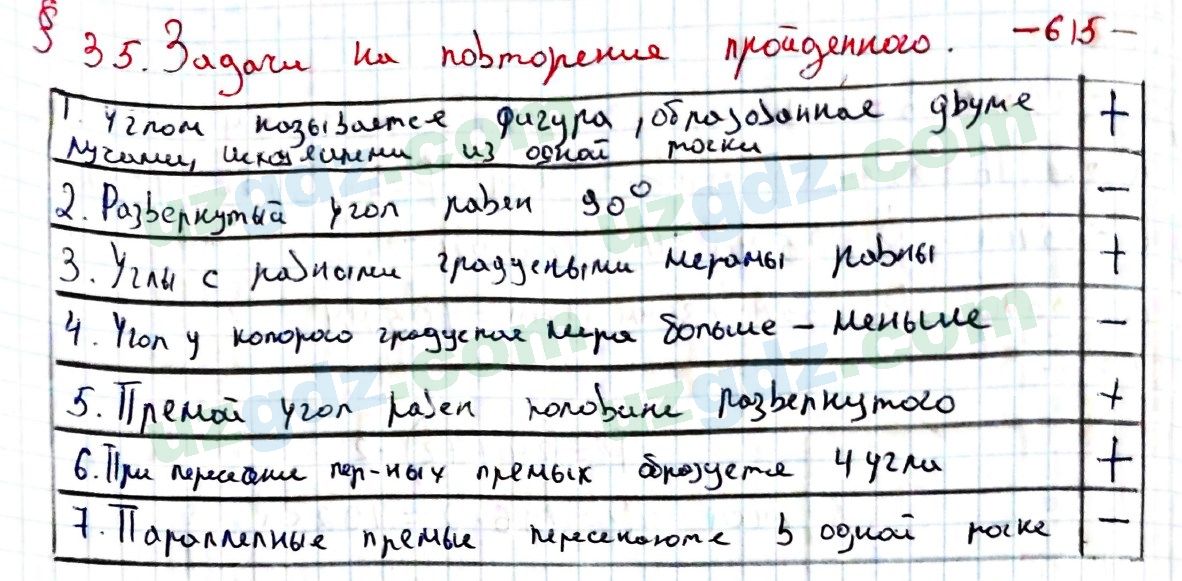 § 35. Задачи на повторение пройденного. -615-
1. Углом называется фигура, образованная двуме +
лучами, исходящими из одной точки
2. Развернутый угол равен 90° -
3. Углы с равными градусными мерамы равны +
4. Угол у которого градусная мера больше - меньше -
5. Премой угол равен половине развернутого +
6. При пересечении пер-ных премых образуете 4 угла +
7. Параллелные премые пересекаюте в одной точке -
uzgdz.com
uzgdz.com
uzgdz.com
uzgdz.com